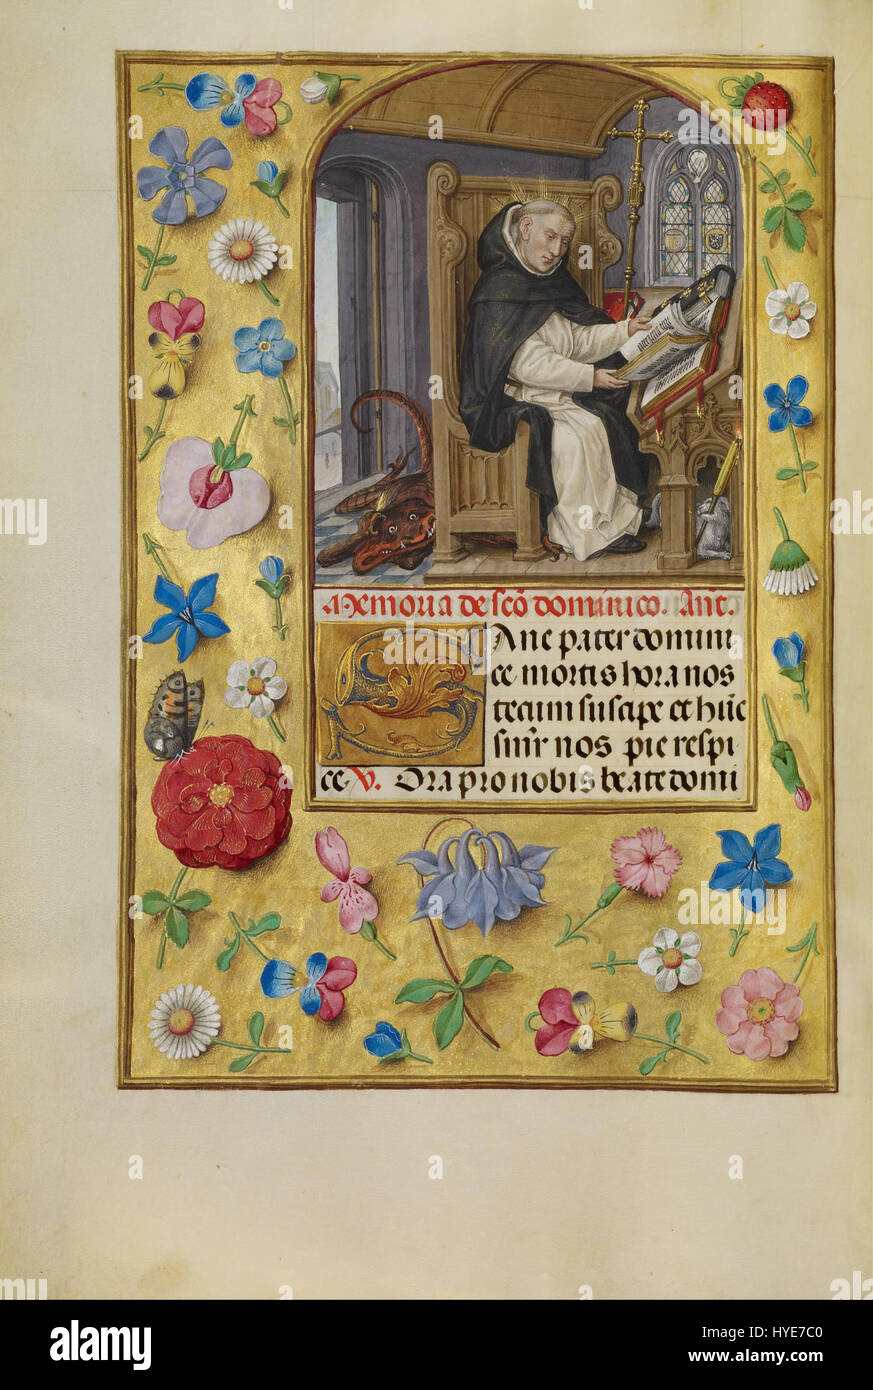 Memoria de sc̄o dominico. Ant̄.
Aue pater domini
ce mortis hora nos
tecum suscipe et hūc
semꝑ nos pie respi
ce. V. Ora pro nobis beate domi
alamy
alamy stock photo
HYE7C0
www.alamy.com